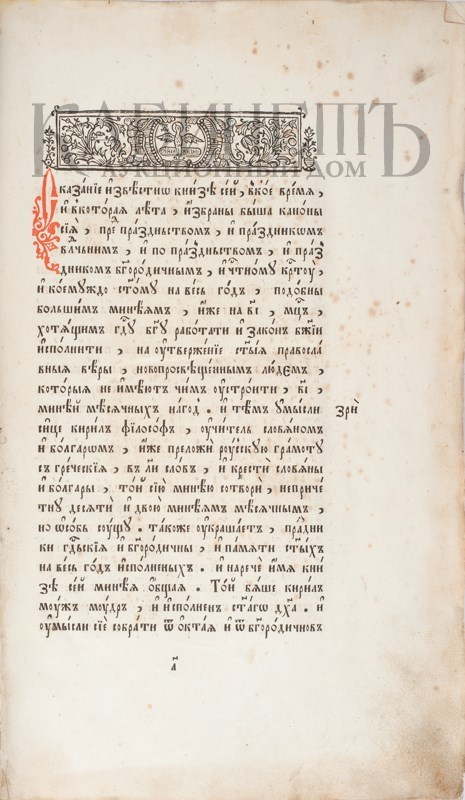 КАБИНЕТЪ
АУКЦИОННЫЙ ДОМ
Сказа́нїе и҆звѣ́стнѡ кни́зѣ се́й , в҆ко́е вре́мѧ ,
и҆ в҆кото́раѧ лѣ́та , и҆збра́ны бы́ша кано́ны
сїѧ̀ , пре пра́зньствомъ , и҆ пра́здникѡмъ
влⷣчьнимъ , и҆ по пра́здньствомъ , и҆ пра́з
дникомъ бг҃оро́дичнымъ , и҆ чⷭ҇тному крⷭ҇тоу̀ ,
и҆ коему́ждо ст҃ому на ве́сь го́дъ , подо́бны
больши́мъ мине́ѧмъ , и҆́же на в҃і , мцⷭ҇ъ ,
хотѧ́щимъ гдⷭ҇у бг҃у рабо́тати и҆ зако́нъ бж҃їи
и҆спо́лнити , на оу҆твержє́нїе ст҃ы́ѧ правосла́
вныѧ вѣ́ры , новопросвѣще́ннымъ лю́демъ ,
кото́рыѧ не и҆мѣ́ютъ чи́мъ оу҆стро́ити , в҃і ,
мине́й мѣ́сѧчныхъ на го́дъ . и҆ тѣ́мъ оу҆мы́сли
зрѝ
си́це кири́лъ фїло́софъ , оу҆чи́тель словѧ́номъ
и҆ болга́ромъ , и҆́же преложѝ роу́сскую гра́моту
съ гре́ческїѧ , въ л҃и сло́въ , и҆ крестѝ словѧ́ны
и҆ болга́ры , то́й сїю̀ мине́ю сотворѝ , неприче́
тну десѧ́ти и҆ двою̀ мине́ѧмъ мѣ́сѧчнымъ ,
но ѡ҆со́бь соу́щу . та́коже оу҆краша́етъ , пра́дни
ки гдⷭ҇ьскїѧ и҆ бг҃оро́дичны , и҆ па́мѧти ст҃ы́хъ
на ве́сь го́дъ и҆спо́лненыхъ . и҆ наречѐ и҆́мѧ кни
зѣ се́й мине́ѧ о҆́бщаѧ . То́й бѧ́ше кири́лъ
моу́жъ моу́дръ , и҆ и҆спо́лненъ ст҃а́гѡ дх҃а . и҆
оу҆мы́сли сїѐ собра́ти ѿ о҆кта́ѧ и҆ ѿ бг҃оро́дичновъ
а҃